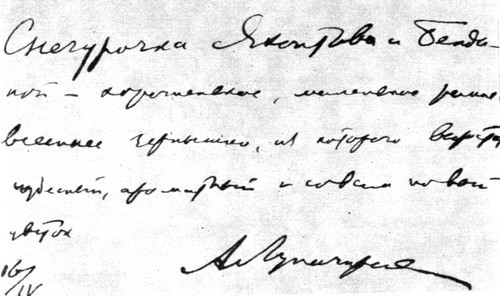 Снегурочка Яхонтова и Бенда
ной – коротенькое, маленькое
весеннее зернышко, из которого вырастет
чудесный, ароматный и совсем новый
цветок
16/IV А Луначарский